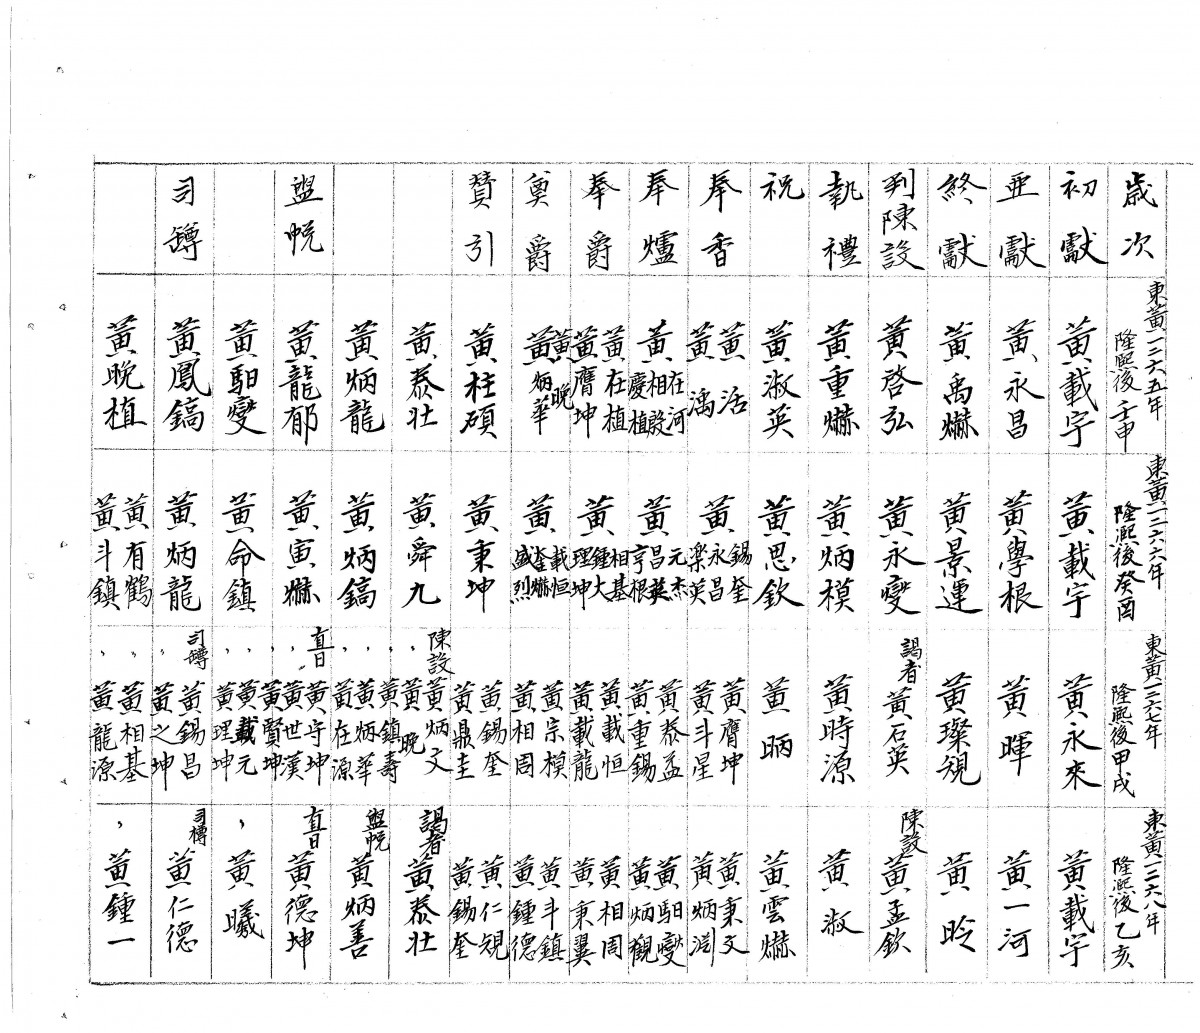 歲次
初獻
亜獻
終獻
判陳設
執禮
祝
奉香
奉爐
奉爵
奠爵
賛引
盥帨
司罇
東黃一二六五年
隆熙後壬申
黃載宇
黃永昌
黃禹爀
黃啓弘
黃重爀
黃淑英
黃活
黃滈
黃在河
相設
慶植
黃在植
黃膺坤
黃晩
黃炳華
黃柱碩
黃泰壮
黃炳龍
黃龍郁
黃馹變
黃鳳鎬
黃晩植
東黃一二六六年
隆熙後癸酉
黃載宇
黃學根
黃景運
黃永變
黃炳模
黃思欽
黃錫奎
永昌
楽英
黃元杰
昌英
亨根
黃相基
鍾大
理坤
黃載恒
奎爀
盛烈
黃秉坤
黃舜九
黃炳鎬
黃寅爀
黃命鎮
黃炳龍
黃有鶴
黃斗鎮
東黃一二六七年
隆熙後甲戌
黃永來
黃暉
黃璨規
謁者
黃石英
黃時源
黃昞
黃膺坤
黃斗星
黃泰益
黃重錫
黃載恒
黃載龍
黃宗模
黃相周
黃錫奎
黃鼎圭
陳設
黃炳文
黃晩
黃鎮壽
黃炳華
黃在源
直日
黃守坤
黃世漢
黃賢坤
黃載元
黃理坤
司罇
黃錫昌
黃之坤
黃相基
黃龍源
東黃一二六八年
隆熙後乙亥
黃載宇
黃一河
黃昑
陳設
黃孟欽
黃淑
黃雲爀
黃秉文
黃炳淵
黃馹變
黃炳觀
黃相周
黃秉翼
黃斗鎮
黃鍾德
黃仁規
黃錫奎
謁者
黃泰壮
盥帨
黃炳善
直日
黃德坤
黃曦
司樽
黃仁德
黃鍾一